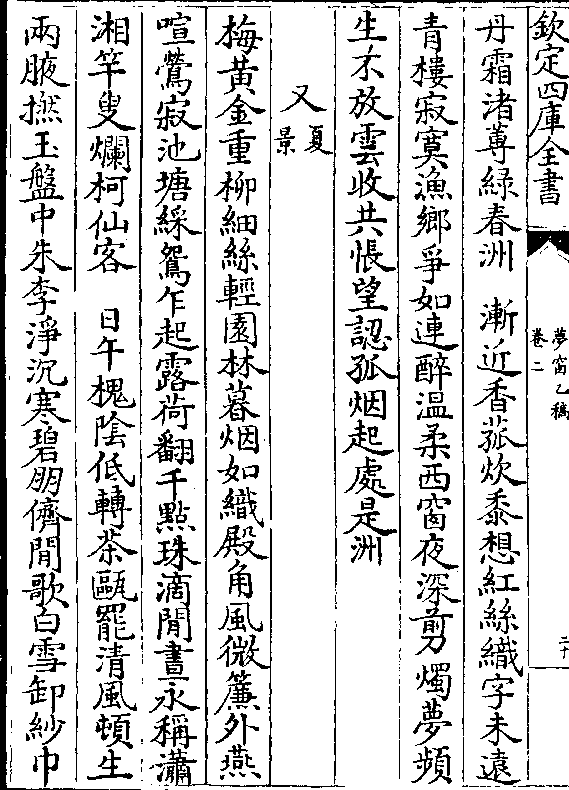 欽定四庫全書
夢窗乙稿
卷二
二十
丹霜渚蓴綠春洲　漸近香菰炊黍想紅絲織字未遠
青樓寂寞漁鄉爭如連醉溫柔西窗夜深剪燭夢頻
生不放雲收共悵望認孤烟起處是洲
又夏景
梅黃金重柳細絲輕園林暮烟如織殿角風微簾外燕
喧鶯寂池塘綵鴛乍起露荷翻千點珠滴閒晝永稱瀟
湘竿叟爛柯仙客　日午槐陰低轉茶甌罷清風頓生
兩腋撚玉盤中朱李淨沉寒碧朋儕閒歌白雪卸紗巾